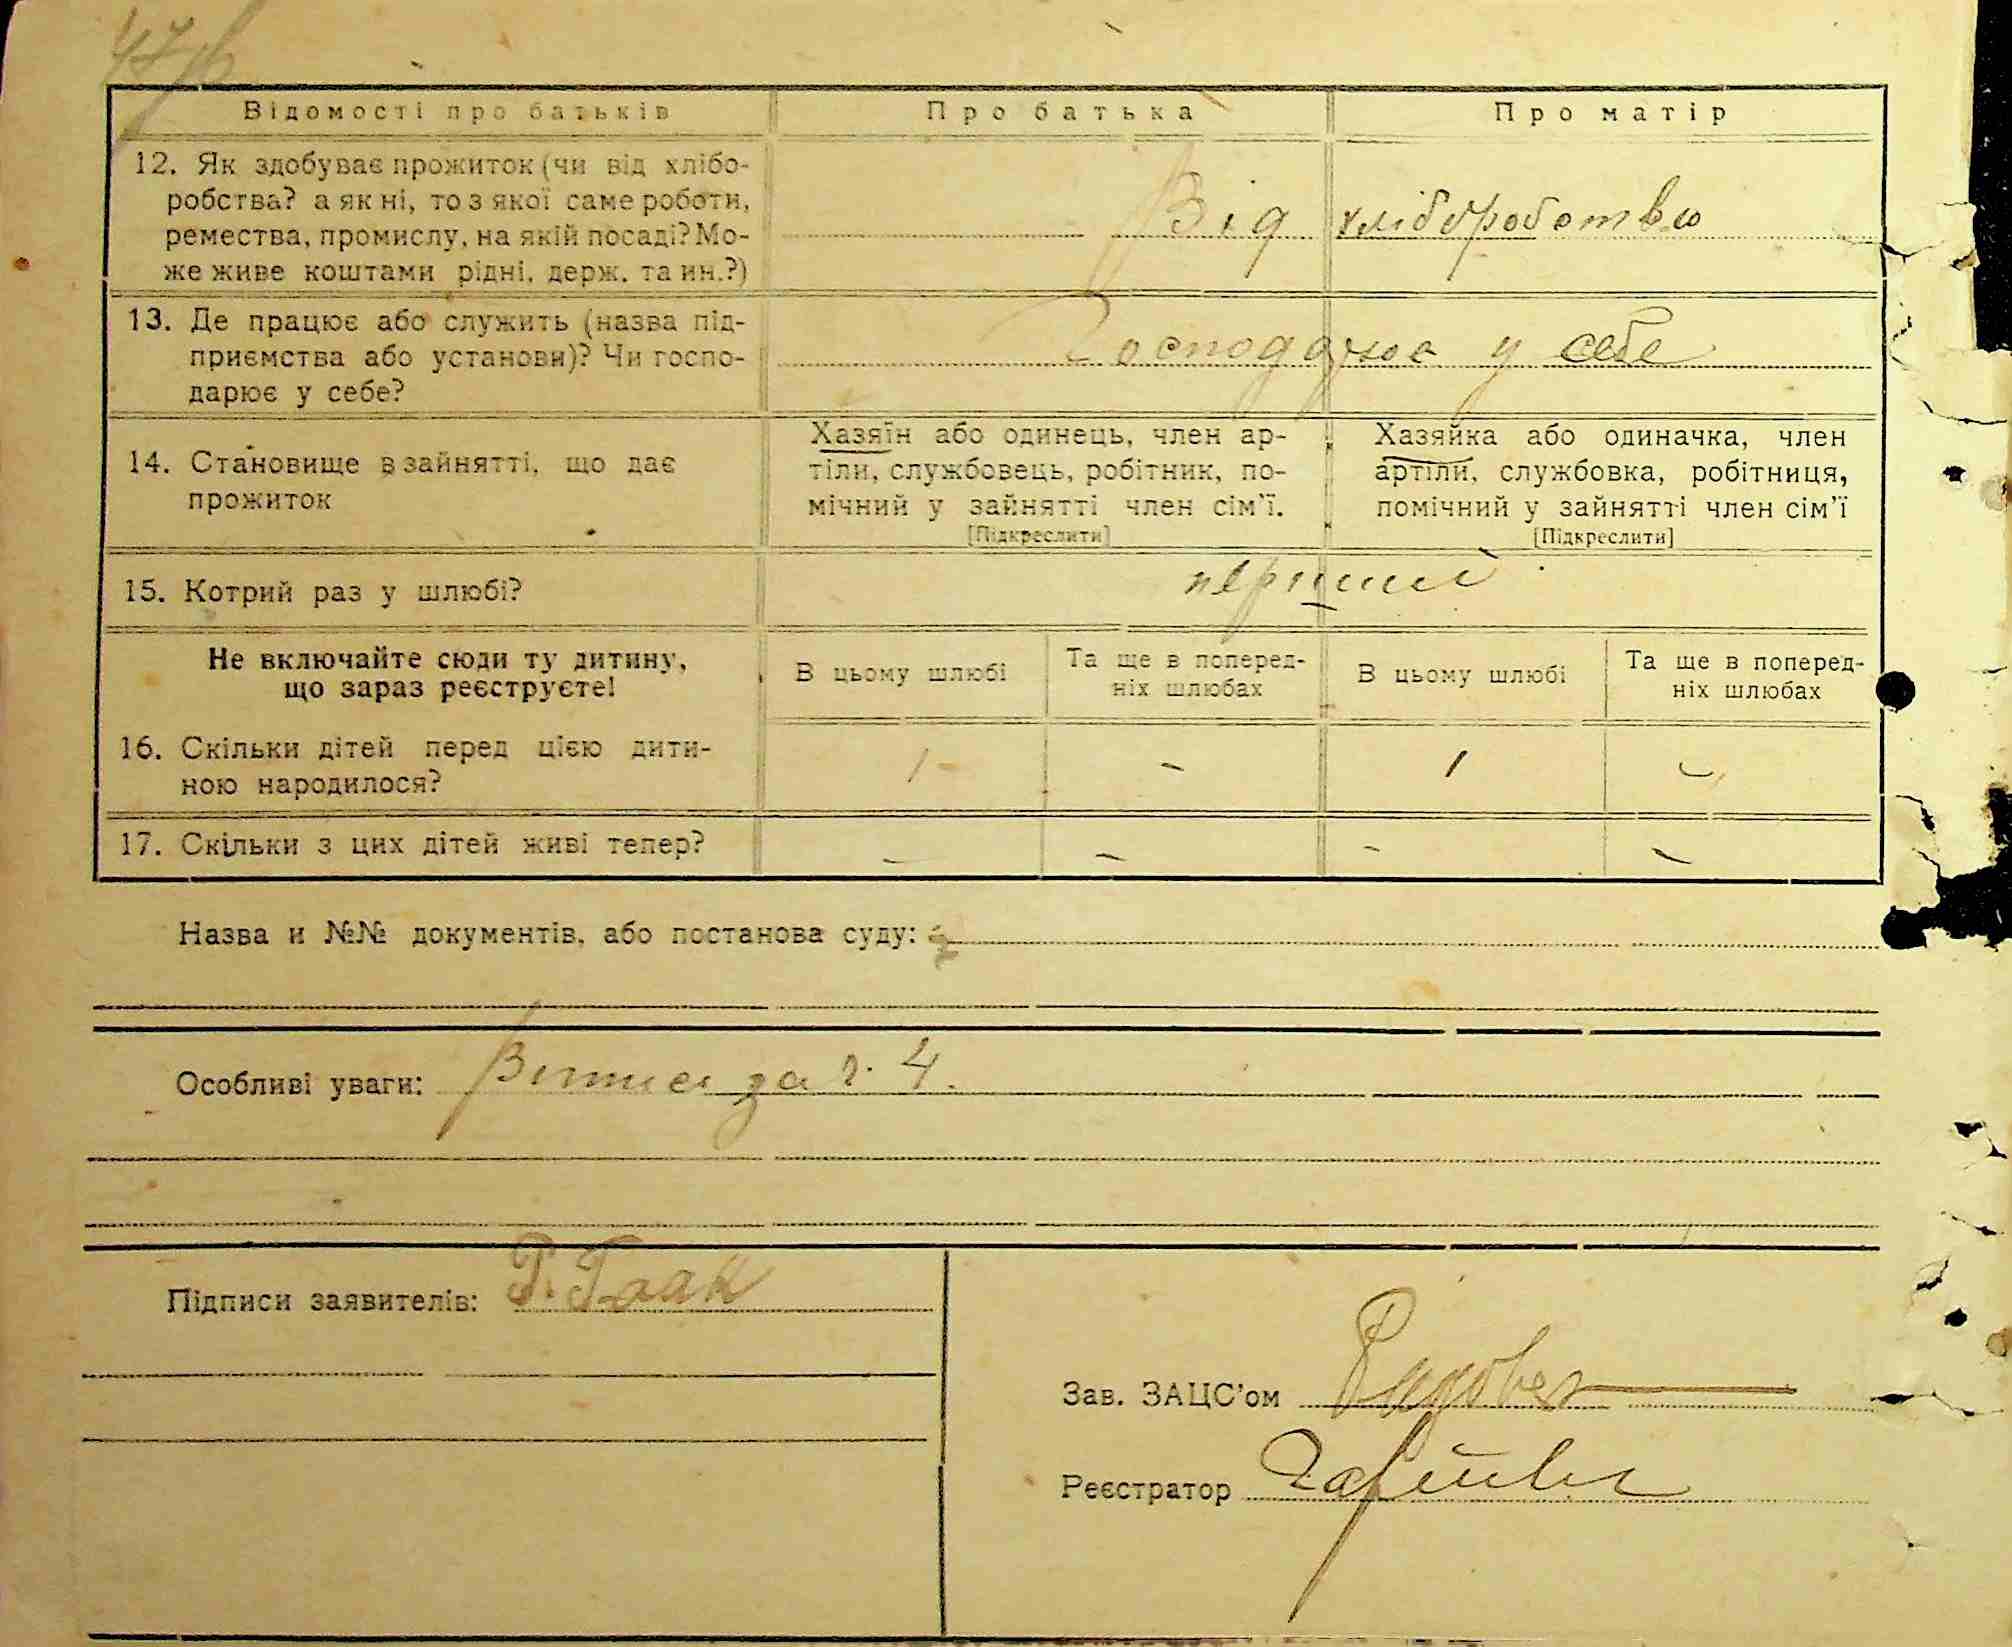 Відомості про батьків
Про батька
Про матір
12. Як здобуває прожиток (чи від хлібо-
робства? а як ні, то з якої саме роботи,
ремества, промислу, на якій посаді? Мо-
же живе коштами рідні, держ. та ин.?)
Від хлібороботва
13. Де працює або служить (назва під-
приємства або установи)? Чи госпо-
дарює у себе?
у себе
14. Становище в зайнятті, що дає
прожиток
Хазяїн або одинець, член ар-
тіли, службовець, робітник, по-
мічний у зайнятті член сім'ї.
[Підкреслити]
Хазяйка або одиначка, член
артіли, службовка, робітниця,
помічний у зайнятті член сім'ї
[Підкреслити]
15. Котрий раз у шлюбі?
перший
Не включайте сюди ту дитину,
що зараз реєструєте!
В цьому шлюбі
Та ще в поперед-
ніх шлюбах
В цьому шлюбі
Та ще в поперед-
ніх шлюбах
16. Скільки дітей перед цією дити-
ною народилося?
1 - 1 -
17. Скільки з цих дітей живі тепер?
- - - -
Назва и №№ документів, або постанова суду:
Особливі уваги: за ч. 4.
Підписи заявителів:
Зав. ЗАЦС'ом
Реєстратор